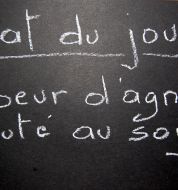 at du jou
oeur d'agn
uté au so